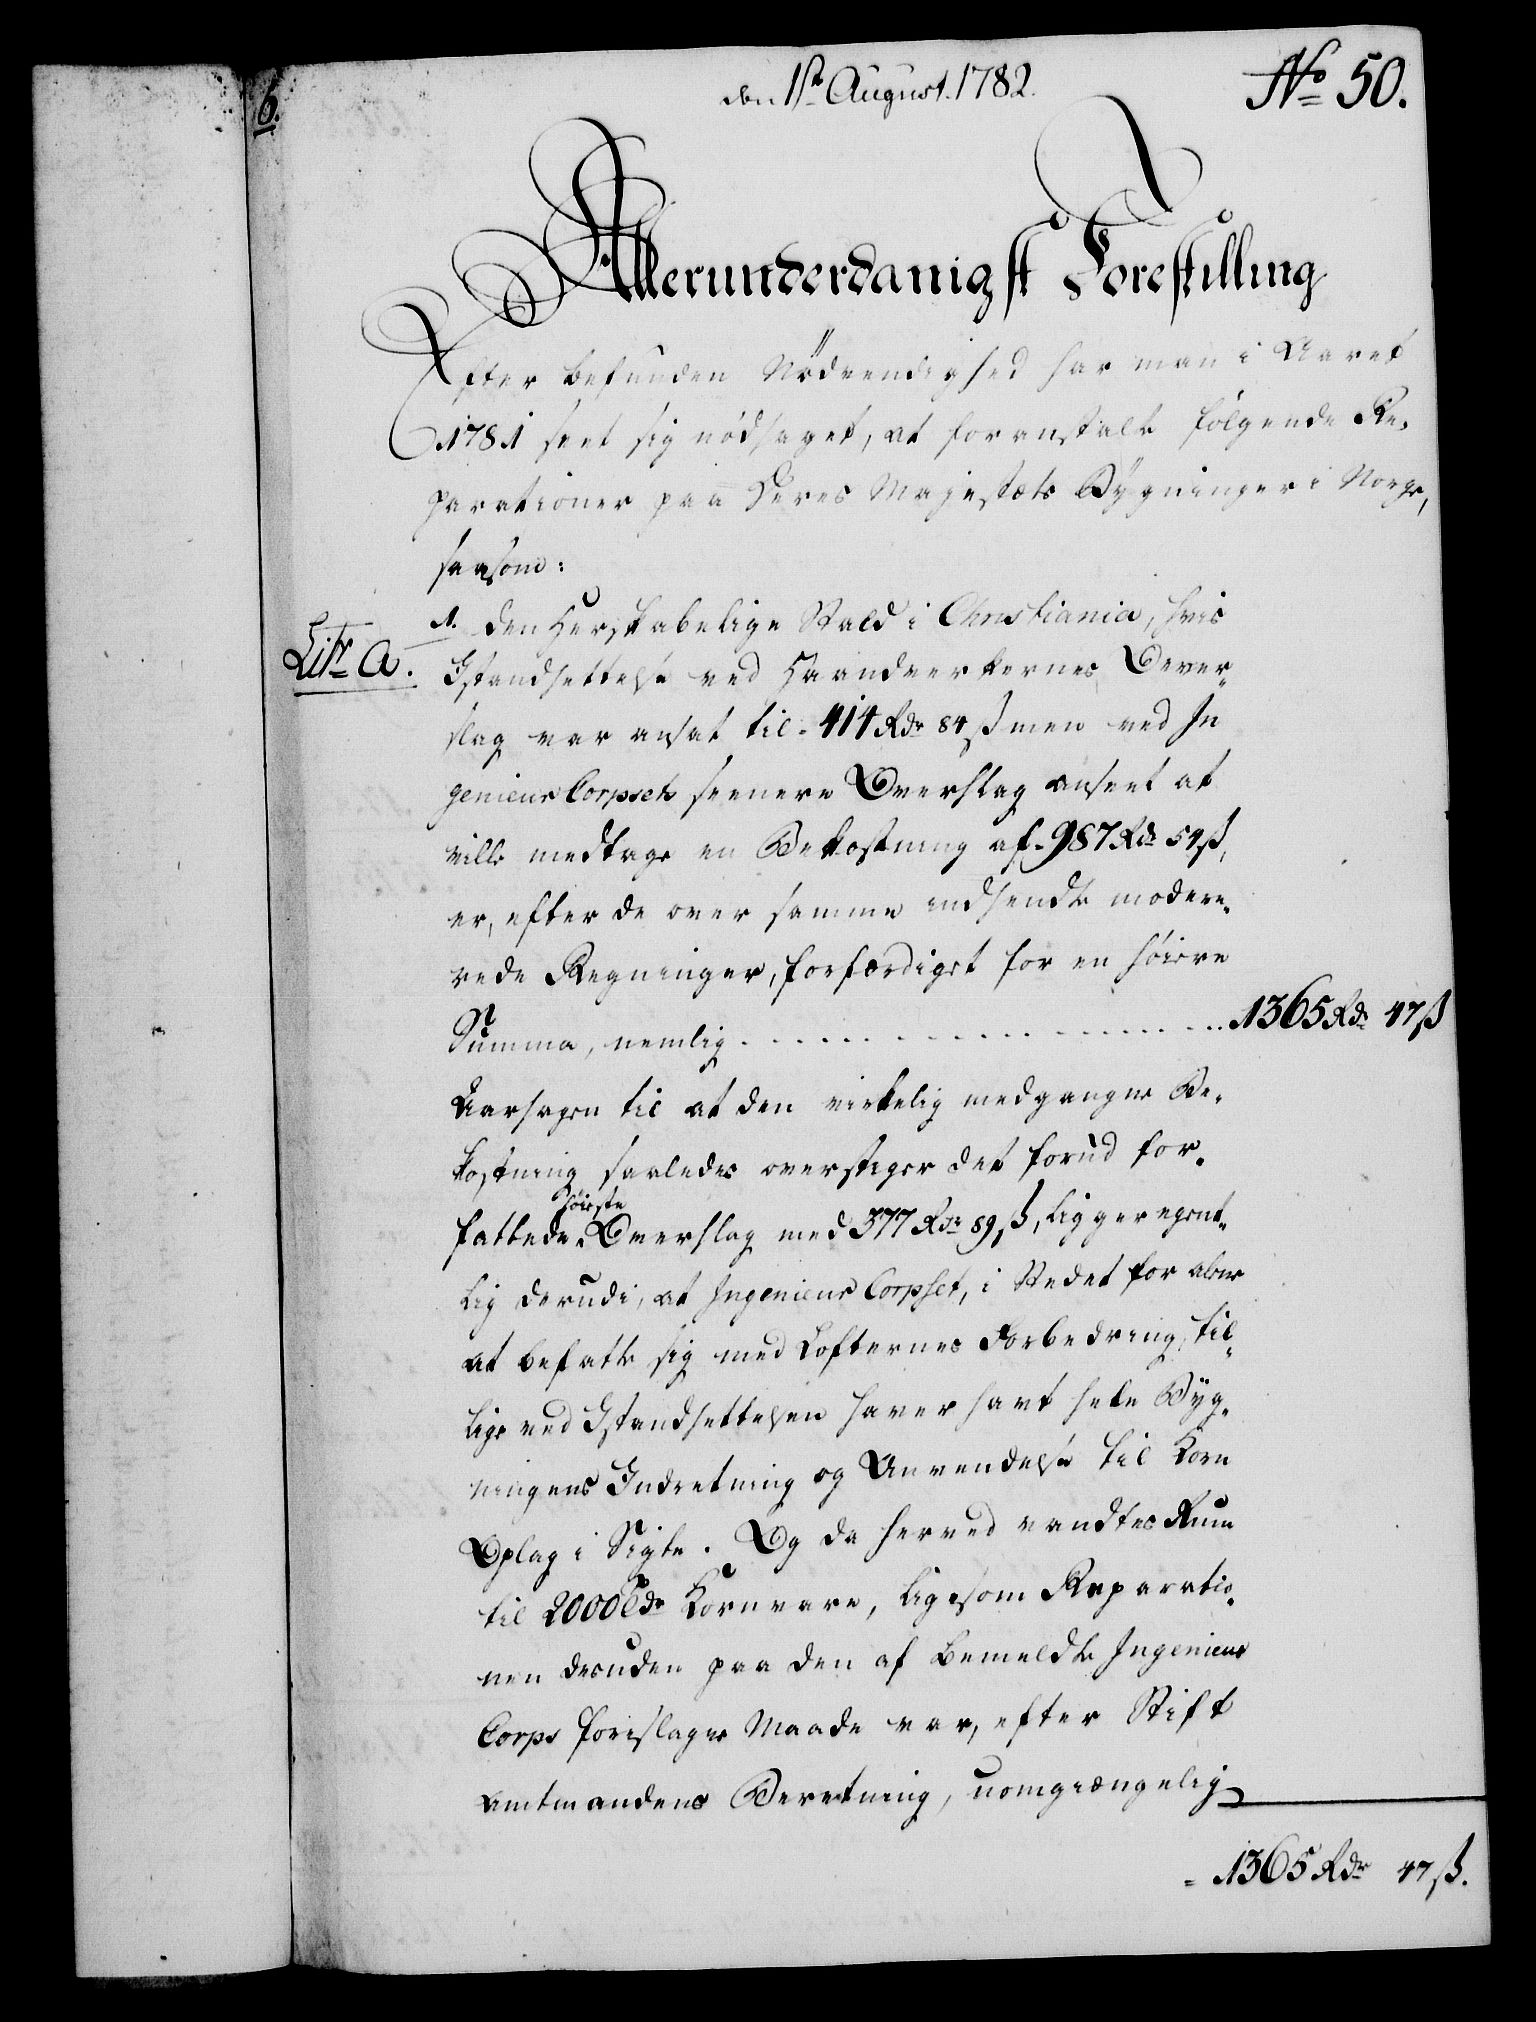 6.
den 1ste August. 1782.
No 50.
Allerunderdanigst Forestilling
Efter befunden Nödvendighed har man i Aaret
1781 seet sig nödsaget, at foranstalte følgende Re-
parationer paa Deres Majestæts Bygninger i Norge,
saasom:
Litr. A.
1. den Herskabelige Stald i Christiania, hvis
Istandsettelse ved Haandverkernes Over-
slag var ansat til 414 Rdr 84 ß men ved In
genieur Corpsets seenere Overslag anseet at
ville medtage en Bekostning af 987 Rdr 54 ß,
er, efter de over samme indsendte modere-
rede Regninger, forfærdiget for en høiere
Summa, nemlig . . . . . . . . . . . . 1365 Rdr 47 ß
Aarsagen til at den virkelig medgangne Be-
kostning saaledes overstiger det forud for-
fattede høieste Overslag med 377 Rdr 89 ß, ligger egent-
lig derudi, at Ingenieur Corpset, i Stedet for alene
at befatte sig med Lofternes Forbedring, til-
lige ved Istandsettelsen haver havt hele Byg-
ningens Indretning og Anvendelse til Korn
Oplag i Sigte. Og da herved vandtes Rum
til 2000 Tdr Kornvare, ligesom Reparatio-
nen desuden paa den af bemeldte Ingenieur
Corps foreslagne Maade var, efter Stift
amtmandens Beretning, uomgiængelig
= 1365 Rdr 47 ß.